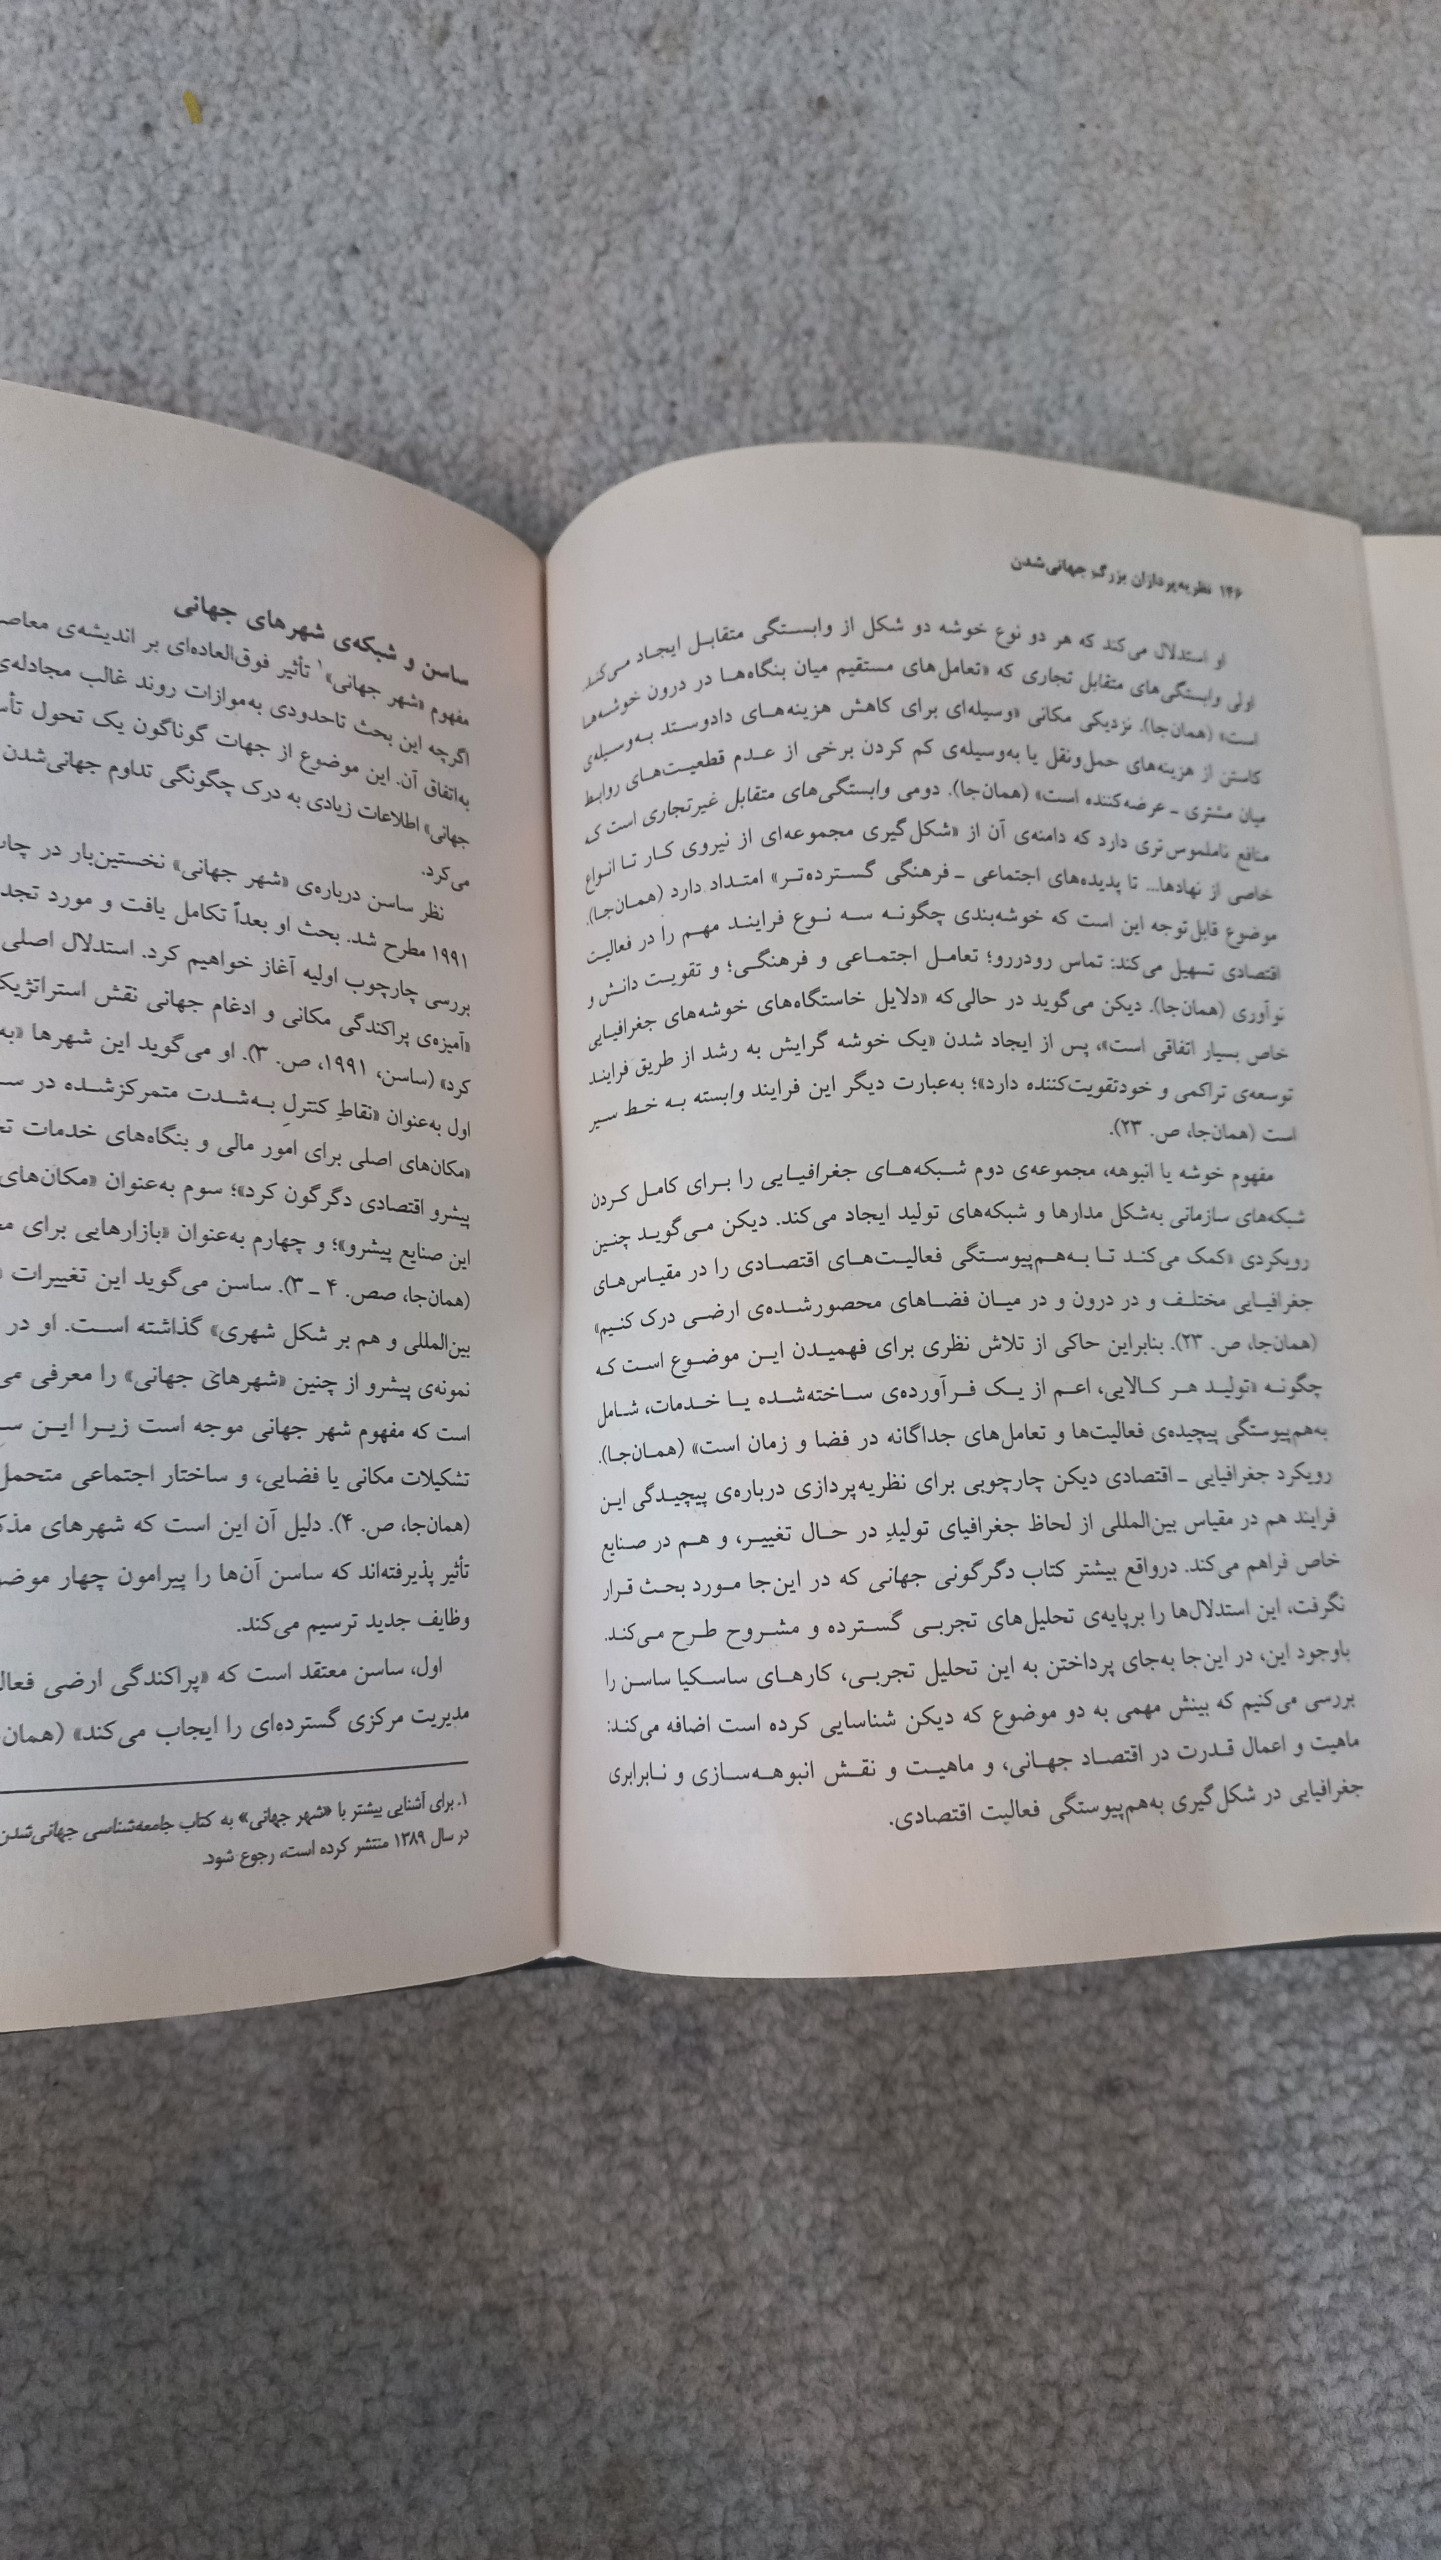 ۱۴۶ نظریه‌پردازان بزرگ جهانی‌شدن
او استدلال می‌کند که هر دو نوع خوشه دو شکل از وابستگی متقابل ایجاد می‌کند.
اولی وابستگی‌های متقابل تجاری که «تعامل‌های مستقیم میان بنگاه‌ها در درون خوشه‌ها
است» (همان‌جا). نزدیکی مکانی «وسیله‌ای برای کاهش هزینه‌های دادوستد به‌وسیله‌ی
کاستن از هزینه‌های حمل‌ونقل یا به‌وسیله‌ی کم کردن برخی از عدم قطعیت‌های روابط
میان مشتری ـ عرضه‌کننده است» (همان‌جا). دومی وابستگی‌های متقابل غیرتجاری است که
منافع ناملموس‌تری دارد که دامنه‌ی آن از «شکل‌گیری مجموعه‌ای از نیروی کار تا انواع
خاصی از نهادها... تا پدیده‌های اجتماعی ـ فرهنگی گسترده‌تر» امتداد دارد (همان‌جا).
موضوع قابل‌توجه این است که خوشه‌بندی چگونه سه نوع فرایند مهم را در فعالیت
اقتصادی تسهیل می‌کند: تماس رودررو؛ تعامل اجتماعی و فرهنگی؛ و تقویت دانش و
نوآوری (همان‌جا). دیکن می‌گوید در حالی‌که «دلایل خاستگاه‌های خوشه‌های جغرافیایی
خاص بسیار اتفاقی است»، پس از ایجاد شدن «یک خوشه گرایش به رشد از طریق فرایند
توسعه‌ی تراکمی و خودتقویت‌کننده دارد»؛ به‌عبارت دیگر این فرایند وابسته به خط سیر
است (همان‌جا، ص. ۲۳).
مفهوم خوشه یا انبوهه، مجموعه‌ی دوم شبکه‌های جغرافیایی را برای کامل کردن
شبکه‌های سازمانی به‌شکل مدارها و شبکه‌های تولید ایجاد می‌کند. دیکن می‌گوید چنین
رویکردی «کمک می‌کند تا به‌هم‌پیوستگی فعالیت‌های اقتصادی را در مقیاس‌های
جغرافیایی مختلف و در درون و در میان فضاهای محصورشده‌ی ارضی درک کنیم»
(همان‌جا، ص. ۲۳). بنابراین حاکی از تلاش نظری برای فهمیدن این موضوع است که
چگونه «تولید هر کالایی، اعم از یک فرآورده‌ی ساخته‌شده یا خدمات، شامل
به‌هم‌پیوستگی پیچیده‌ی فعالیت‌ها و تعامل‌های جداگانه در فضا و زمان است» (همان‌جا).
رویکرد جغرافیایی ـ اقتصادی دیکن چارچوبی برای نظریه‌پردازی درباره‌ی پیچیدگی این
فرایند هم در مقیاس بین‌المللی از لحاظ جغرافیای تولیدِ در حال تغییر، و هم در صنایع
خاص فراهم می‌کند. درواقع بیشتر کتاب دگرگونی جهانی که در این‌جا مورد بحث قرار
نگرفت، این استدلال‌ها را برپایه‌ی تحلیل‌های تجربی گسترده و مشروح طرح می‌کند.
باوجود این، در این‌جا به‌جای پرداختن به این تحلیل تجربی، کارهای ساسکیا ساسن را
بررسی می‌کنیم که بینش مهمی به دو موضوع که دیکن شناسایی کرده است اضافه می‌کند:
ماهیت و اعمال قدرت در اقتصاد جهانی، و ماهیت و نقش انبوهه‌سازی و نابرابری
جغرافیایی در شکل‌گیری به‌هم‌پیوستگی فعالیت اقتصادی.
ساسن و شبکه‌ی شهرهای جهانی
مفهوم «شهر جهانی»۱ تأثیر فوق‌العاده‌ای بر اندیشه‌ی
اگرچه این بحث تاحدودی به‌موازات روند غالب مجادله‌ی
به‌اتفاق آن. این موضوع از جهات گوناگون یک تحول
جهانی» اطلاعات زیادی به درک چگونگی تداوم جهانی‌شدن
می‌کرد.
نظر ساسن درباره‌ی «شهر جهانی» نخستین‌بار در
۱۹۹۱ مطرح شد. بحث او بعداً تکامل یافت و مورد
بررسی چارچوب اولیه آغاز خواهیم کرد. استدلال اصلی
«آمیزه‌ی پراکندگی مکانی و ادغام جهانی نقش
کرد» (ساسن، ۱۹۹۱، ص. ۳). او می‌گوید این شهرها
اول به‌عنوان «نقاطِ کنترلِ به‌شدت متمرکزشده در
«مکان‌های اصلی برای امور مالی و بنگاه‌های خدمات
پیشرو اقتصادی دگرگون کرد»؛ سوم به‌عنوان «مکان‌های
این صنایع پیشرو»؛ و چهارم به‌عنوان «بازارهایی برای
(همان‌جا، صص. ۴ ـ ۳). ساسن می‌گوید این تغییرات
بین‌المللی و هم بر شکل شهری» گذاشته است. او در
نمونه‌ی پیشرو از چنین «شهرهای جهانی» را معرفی
است که مفهوم شهر جهانی موجه است زیرا این
تشکیلات مکانی یا فضایی، و ساختار اجتماعی
(همان‌جا، ص. ۴). دلیل آن این است که شهرهای
تأثیر پذیرفته‌اند که ساسن آن‌ها را پیرامون چهار
وظایف جدید ترسیم می‌کند.
اول، ساسن معتقد است که «پراکندگی ارضی
مدیریت مرکزی گسترده‌ای را ایجاب می‌کند»
۱. برای آشنایی بیشتر با «شهر جهانی» به کتاب جامعه‌شناسی جهانی‌شدن
در سال ۱۳۸۹ منتشر کرده است، رجوع شود.